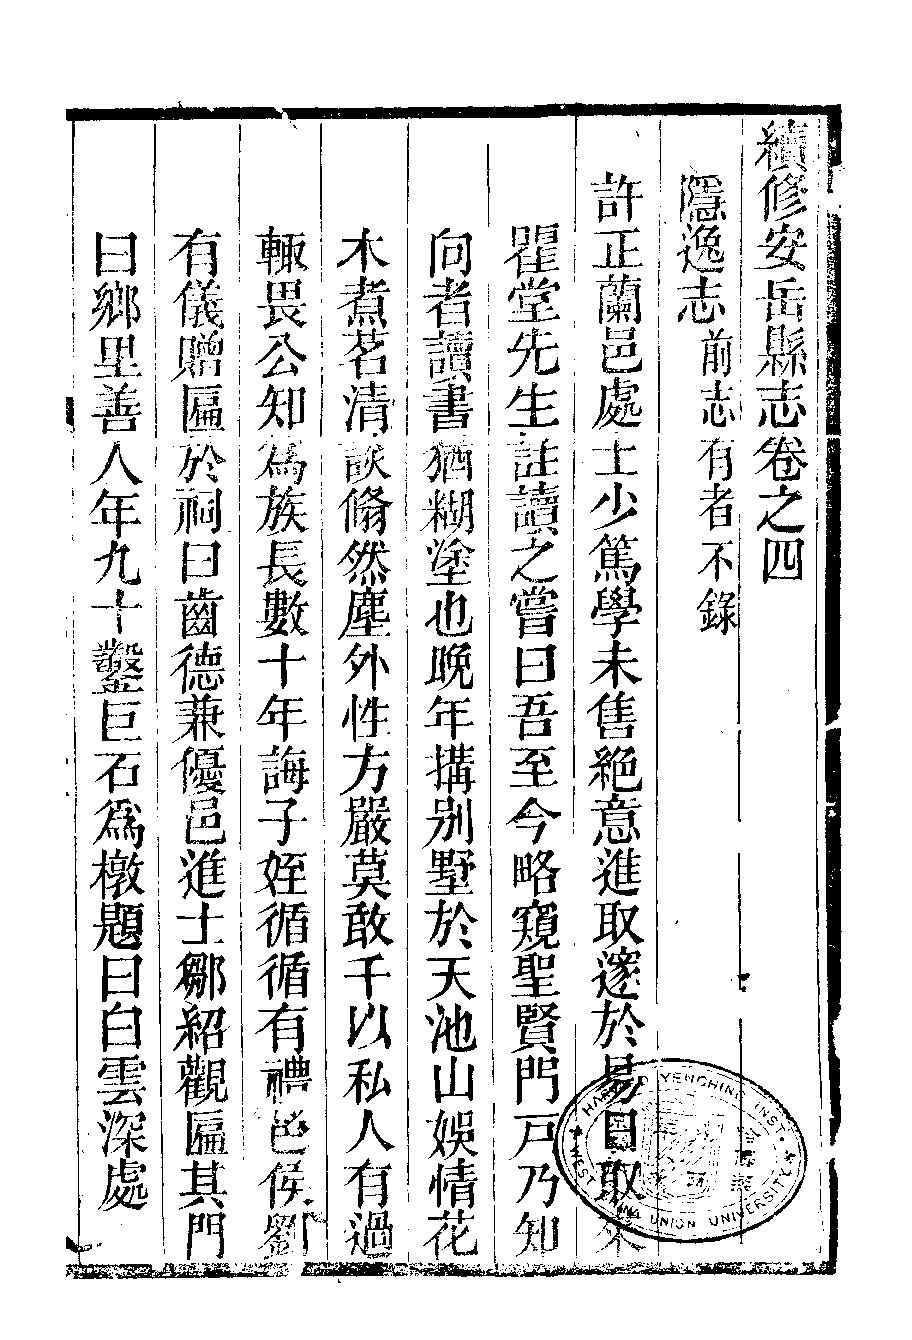 續修安岳縣志卷之四
隱逸志 前志有者不錄
許正蘭邑處士少篤學未售絕意進取邃於易日取來
瞿堂先生註讀之嘗曰吾至今略窺聖賢門戸乃知
向者讀書猶糊塗也晚年搆别墅於天池山娛情花
木煮茗清談翛然塵外性方嚴莫敢干以私人有過
輙畏公知爲族長數十年誨子姪循循有禮邑侯劉
有儀贈匾於祠曰齒德兼優邑進士鄒紹觀匾其門
曰鄉里善人年九十鑿巨石爲墩題曰白雲深處
HARVARD YENCHING INST.
WEST CHINA UNION UNIVERSITY